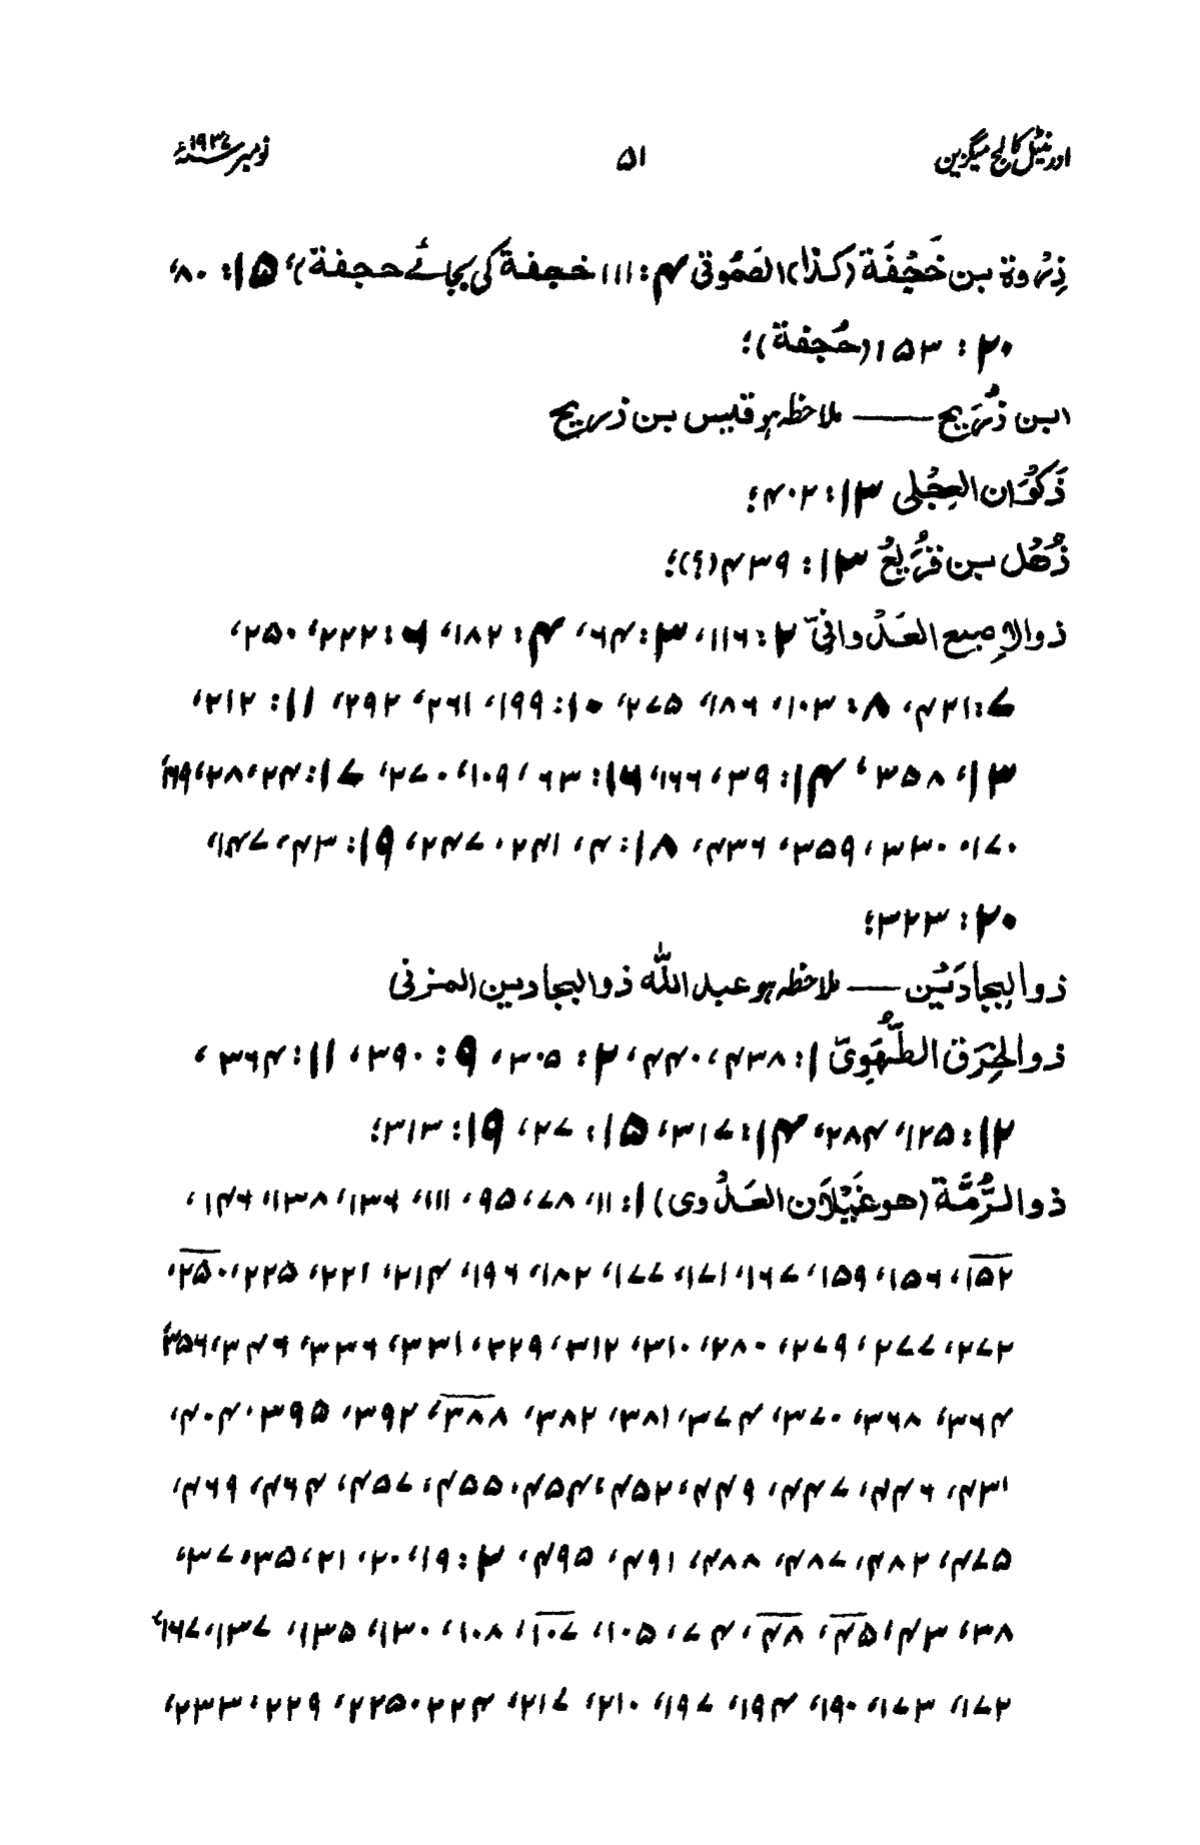 اورنٹیل کالج میگزین ۵۱ نومبر سنہ ۱۹۳۷ء
ذِرْوة بن خَجْفَة (کذا) الصَمُوتی ۴: ۱۱۱ خجفة کی بجائے حجفة)، ۱۵: ۸۰،
۲۰: ۱۵۳ (حُجفة)؛
ابن ذُرَیح —— ملاحظہ ہو قیس بن ذریح
ذَکْوَان العِجْلی ۱۳: ۴۰۲؛
ذُهْل بن قُرَیعْ ۱۳: ۴۳۹ (؟)؛
ذوالاِصبع العَدْوانیّ ۲: ۱۱۶، ۳: ۴۶، ۴: ۱۸۲، ۶: ۲۲۲، ۲۵۰،
۷: ۴۲۱، ۸: ۱۰۳، ۱۸۶، ۲۷۵، ۱۰: ۱۹۹، ۲۶۱، ۲۹۲، ۱۱: ۲۱۲،
۱۳، ۳۵۷، ۱۴: ۳۹، ۱۶۶، ۱۶: ۶۳، ۱۰۹، ۲۷۰، ۱۷: ۴۲، ۲۷، ۶۹،
۱۷۰، ۳۳۰، ۳۵۹، ۴۳۶، ۱۸: ۴، ۲۴۱، ۲۴۷، ۱۹: ۴۳، ۱۴۷،
۲۰: ۳۲۳؛
ذوالبِجادَیْن —— ملاحظہ ہو عبد اللہ ذوالبجادین المزنی
ذوالخِرَق الطُّهَوِیّ ۱: ۴۳۸، ۴۴۰، ۲: ۳۰۵، ۹: ۳۹۰، ۱۱: ۳۶۴،
۱۲: ۱۲۵، ۲۸۴، ۱۴: ۳۱۷، ۱۵: ۲۷، ۱۹: ۳۱۳؛
ذوالرُّمَّة (هو غَیْلَان العَدْوی) ۱: ۱۱، ۷۸، ۹۵، ۱۱۱، ۱۳۶، ۱۳۸، ۱۴۶،
۱۵۲، ۱۵۶، ۱۵۹، ۱۶۷، ۱۷۱، ۱۷۷، ۱۸۲، ۱۹۶، ۲۱۴، ۲۲۱، ۲۲۵، ۲۵۰،
۲۷۲، ۲۷۷، ۲۷۹، ۲۸۰، ۳۱۰، ۳۱۲، ۳۲۹، ۳۳۱، ۳۳۶، ۳۴۶، ۳۵۶،
۳۶۴، ۳۶۸، ۳۷۰، ۳۷۴، ۳۷۱، ۳۷۲، ۳۷۸، ۳۹۲، ۳۹۵، ۴۰۴،
۴۳۱، ۴۴۶، ۴۴۷، ۴۴۹، ۴۵۲، ۴۵۴، ۴۵۵، ۴۵۷، ۴۶۴، ۴۶۹،
۴۷۵، ۴۷۲، ۴۷۷، ۴۷۸، ۴۹۱، ۴۹۵، ۲: ۱۹، ۲۰، ۲۱، ۳۵، ۳۷،
۳۸، ۴۳، ۴۵، ۴۸، ۷۴، ۱۰۵، ۱۰۷، ۱۰۸، ۱۳۰، ۱۳۵، ۱۳۷، ۱۶۷،
۱۷۲، ۱۷۳، ۱۹۰، ۱۹۴، ۱۹۷، ۲۱۰، ۲۱۷، ۲۲۴، ۲۲۵، ۲۲۹، ۲۳۳،